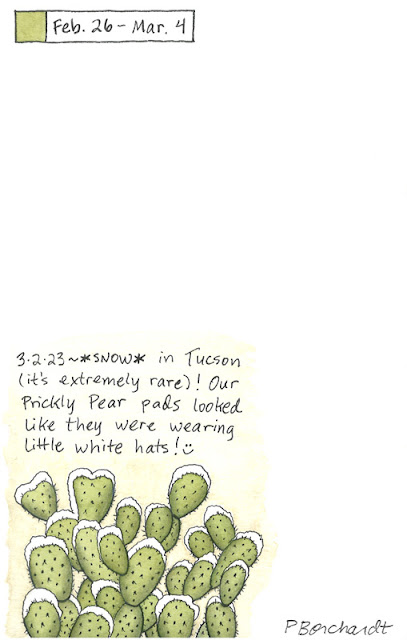 Feb. 26 - Mar. 4
3.2.23~*SNOW* in Tucson
(it's extremely rare)! Our
Prickly Pear pads looked
like they were wearing
little white hats! :)
PBorchardt